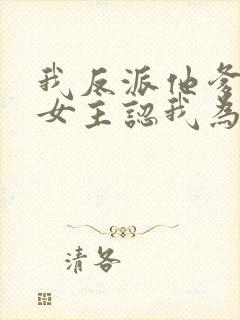 我反派他爹
女主認我為
清各